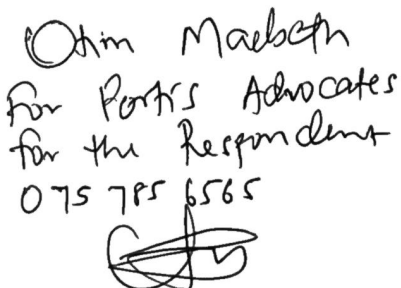 Otim Macbeth
For Portis Advocates
for the Respondent
075 785 6565